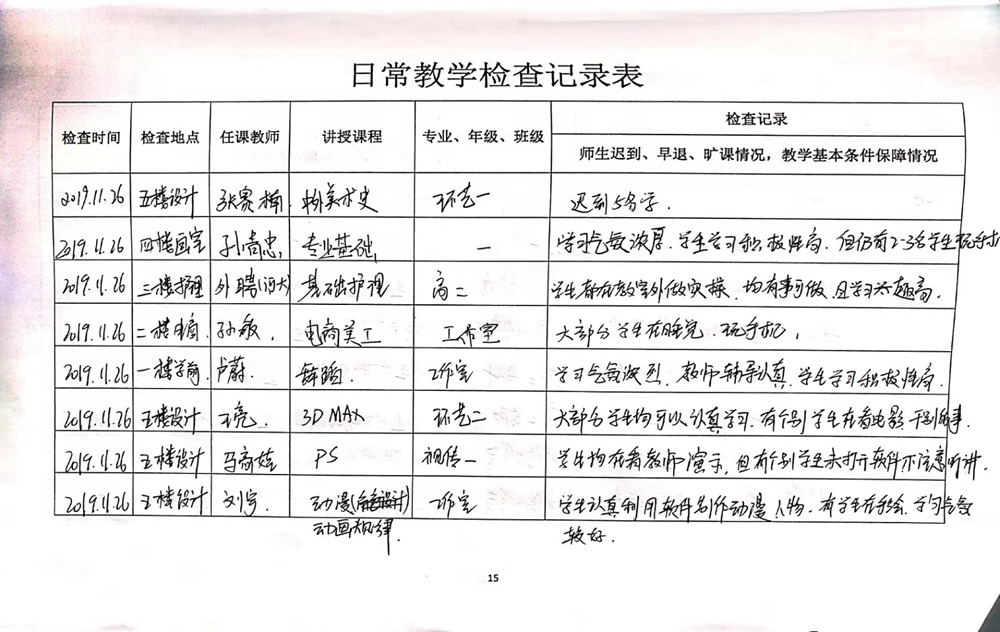 日常教学检查记录表
检查时间 检查地点 任课教师 讲授课程 专业、年级、班级 检查记录
师生迟到、早退、旷课情况，教学基本条件保障情况
2019.11.26 五楼设计 张赛楠 美术史 环艺一 迟到5名学.
2019.11.26 四楼画室 孙尚忠, 专业基础, 一 学习气氛浓厚.学生学习积极性高.但仍有2-3名学生玩手机
2019.11.26 三楼护理 外聘(河大) 基础护理 高二 学生都在教室外做实操,均有事可做,且学习兴趣高.
2019.11.26 二楼电商 孙敏. 电商美工 工作室 大部分学生在睡觉.玩手机,
2019.11.26 一楼学前 卢蔚. 舞蹈. 工作室 学习气氛浓烈.教师辅导认真,学生学习积极性高.
2019.11.26 五楼设计 王亮. 3D MAX 环艺二 大部分学生均可以认真学习.有个别学生在看电影干别的事.
2019.11.26 五楼设计 马商娃 PS 视传一 学生均在看教师演示,但有个别学生未打开软件不注意听讲.
2019.11.26 五楼设计 刘宇. 动漫 工作室 学生认真利用软件制作动漫人物.有学生在手绘.学习气氛
动画规律. 较好.
15